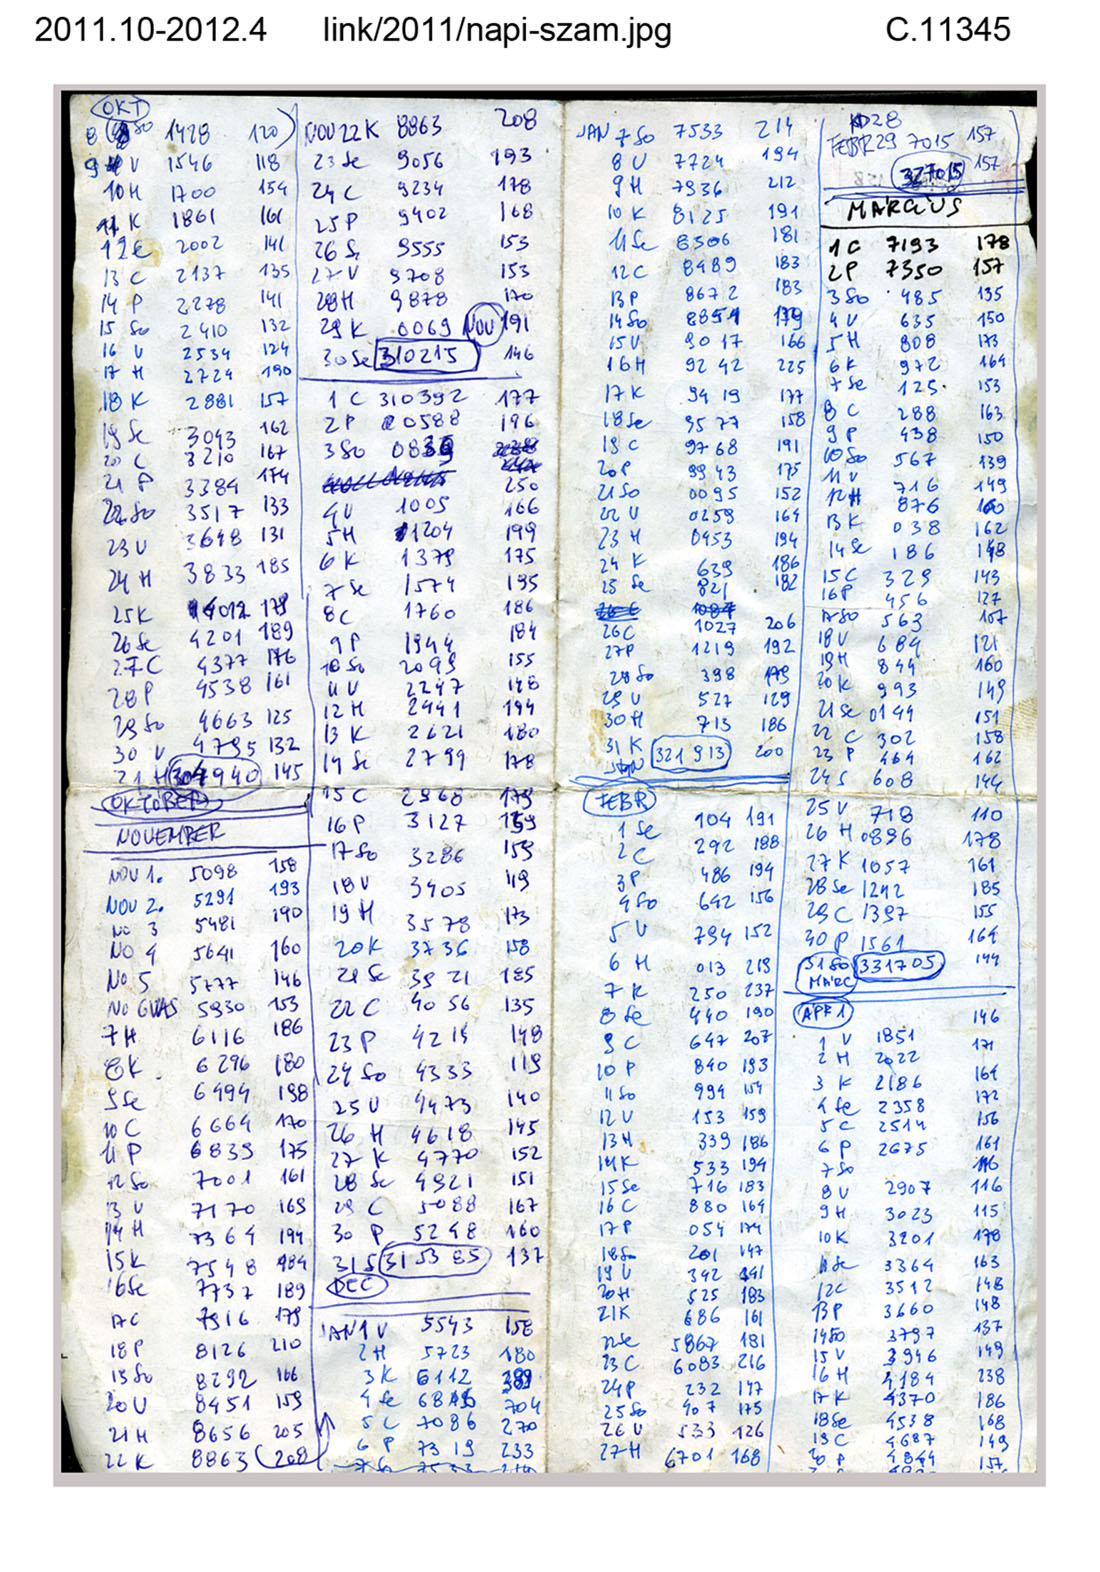 2011.10-2012.4 link/2011/napi-szam.jpg C.11345
OKT
8 So 1428 120
9 V 1546 118
10 H 1700 154
11 K 1861 161
12 C 2002 141
13 C 2137 135
14 P 2278 141
15 So 2410 132
16 V 2534 124
17 H 2724 190
18 K 2881 157
19 Se 3043 162
20 C 3210 167
21 P 3384 174
22 So 3517 133
23 V 3648 131
24 H 3833 185
25 K 4012 179
26 Se 4201 189
27 C 4377 176
28 P 4538 161
29 So 4663 125
30 V 4795 132
21 H 304940 145
OKTOBER
NOVEMBER
NOV 1. 5098 158
NOV 2. 5291 193
NO 3 5481 190
NO 4 5641 160
NO 5 5777 146
NO 6 VAS 5930 153
7 H 6116 186
8 K 6296 180
9 Se 6494 198
10 C 6664 170
11 P 6839 175
12 So 7001 161
13 V 7170 169
14 H 7364 194
15 K 7548 184
16 Se 7737 189
17 C 7916 179
18 P 8126 210
19 So 8292 166
20 V 8451 159
21 H 8656 205
22 K 8863 208
NOV 22 K 8863 208
23 Se 9056 193
24 C 9234 178
25 P 9402 168
26 S 9555 153
27 V 9708 153
28 H 9878 170
29 K 0069 NOV 191
30 Se 310215 146
1 C 310392 177
2 P 0588 196
3 So 0839
250
4 V 1005 166
5 H 1204 199
6 K 1379 175
7 Se 1574 195
8 C 1760 186
9 P 1944 184
10 So 2099 155
11 V 2247 148
12 H 2441 194
13 K 2621 180
14 Se 2799 178
15 C 2968 179
16 P 3127 159
17 So 3286 159
18 V 3405 119
19 H 3578 173
20 K 3736 158
21 Se 3921 185
22 C 4056 135
23 P 4214 148
24 So 4333 119
25 V 4473 140
26 H 4618 145
27 K 4770 152
28 Se 4921 151
29 C 5088 167
30 P 5248 160
31 S 315385 137
DEC
JAN 1 V 5543 158
2 H 5723 180
3 K 6112 389
4 Se 6816 704
5 C 7086 270
6 P 7319 233
JAN 7 So 7533 214
8 V 7724 194
9 H 7936 212
10 K 8125 191
11 Se 8306 181
12 C 8489 183
13 P 8672 183
14 So 8851 179
15 V 9017 166
16 H 9242 225
17 K 9419 177
18 Se 9577 158
19 C 9768 191
20 P 9943 175
21 So 0095 152
22 V 0259 164
23 H 0453 194
24 K 639 186
25 Se 821 182
26 C 1027 206
27 P 1219 192
28 So 398 179
29 V 527 129
30 H 713 186
31 K 321913 200
JAN
FEBR
1 Se 104 191
2 C 292 188
3 P 486 194
4 So 642 156
5 V 794 152
6 H 013 219
7 K 250 237
8 Se 440 190
9 C 647 207
10 P 840 193
11 So 994 154
12 V 153 159
13 H 339 186
14 K 533 194
15 Se 716 183
16 C 880 164
17 P 054 174
18 So 201 147
19 V 342 141
20 H 525 183
21 K 686 161
22 Se 5867 181
23 C 6083 216
24 P 232 147
25 So 407 175
26 V 533 126
27 H 6701 168
28
FEBR 29 7015 157
327015 157
MARCIUS
1 C 7193 178
2 P 7350 157
3 So 485 135
4 V 635 150
5 H 808 173
6 K 972 164
7 Se 125 153
8 C 288 163
9 P 438 150
10 So 567 139
11 V 716 149
12 H 876 160
13 K 038 162
14 Se 186 148
15 C 329 143
16 P 456 127
17 So 563 107
18 V 684 121
19 H 844 160
20 K 993 149
21 Se 0144 151
22 C 302 158
23 P 464 162
24 S 608 144
25 V 718 110
26 H 0896 178
27 K 1057 161
28 Se 1242 185
29 C 1397 155
30 P 1561 164
31 So 331705 144
MARC
APR 1 146
1 V 1851
2 H 2022 171
3 K 2186 164
4 Se 2358 172
5 C 2514 156
6 P 2675 161
7 So 116
8 V 2907 116
9 H 3023 115
10 K 3201 178
11 Se 3364 163
12 C 3512 148
13 P 3660 148
14 So 3797 137
15 V 3946 149
16 H 4184 238
17 K 4370 186
18 Se 4538 168
19 C 4687 149
20 P 4844 157